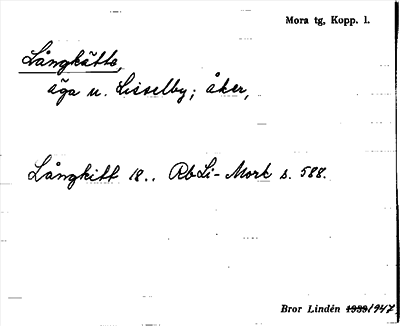 Mora tg, Kopp. l.
Långkätte,
äga u. Lisselby; åker,
Långkitt 18.. RbLi-Mork s. 588.
Bror Lindén 1939/1947